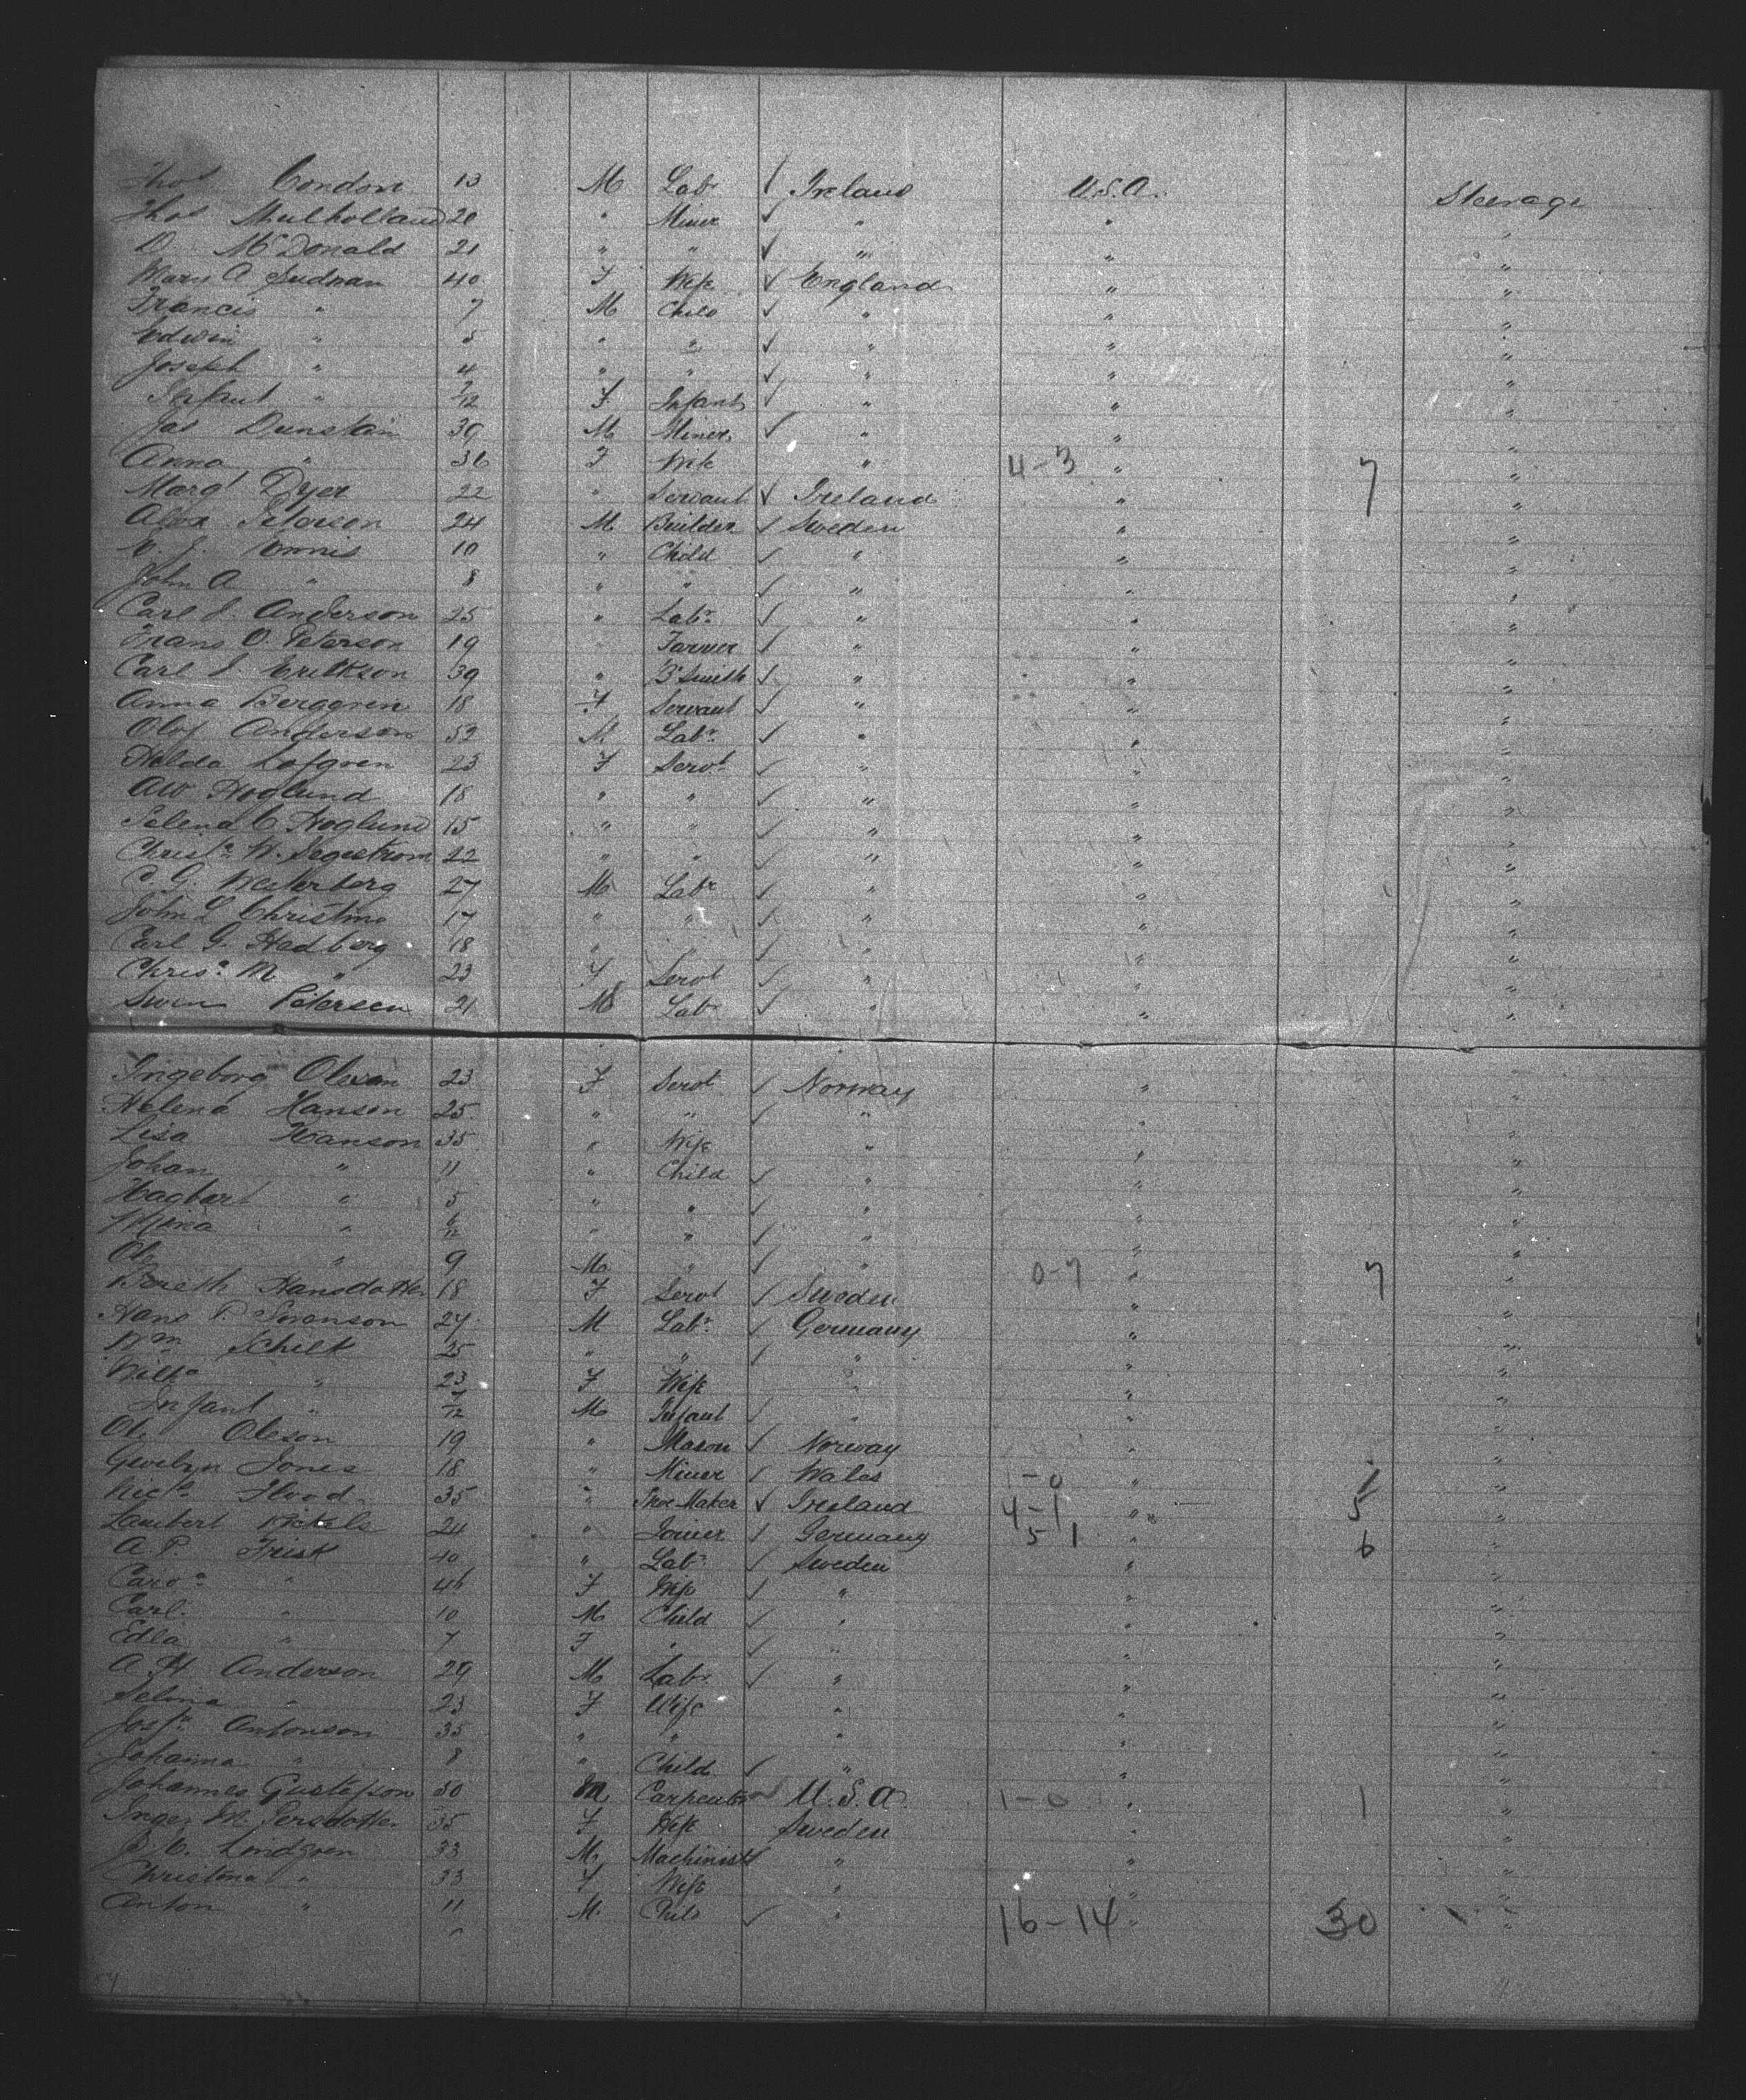 Thos Condon 13 M Labr Ireland U.S.A. Steerage
Thos Mulholland 20 " Miner " " "
D. McDonald 21 " " " " "
Mary A Sudnan 40 F Wife England " "
Francis " 7 M Child " " "
Edwin " 5 " " " " "
Joseph " 4 " " " " "
Infant " /12 F Infant " " "
Jas Dunstan 39 M Miner " " "
Anna " 36 F Wife " 4-3 " 7 "
Margt Dyer 22 " Servant Ireland " "
Peterson 24 M Builder Sweden " "
Ennis 10 " Child " " "
John A " 8 " " " " "
Carl J. Anderson 25 " Labr " " "
Frans O. Peterson 19 Farmer " " "
Carl J. Erikkson 39 " B'Smith " " "
Anna Berggren 18 F Servant " " "
Olof Anderson 52 M. Labr " " "
Hilda Lofgren 23 F Servt " " "
AW Hoglund 18 " " " " "
Selena C Hoglund 15 " " " " "
Christa W. Segestrom 22 " " " " "
C. G. Westerberg 27 M Labr " " "
John L Christine 17 " " " " "
Carl G. Hadberg 18 " " " " "
Chrisa M. " 23 F Servt " " "
Swen Petersen 21 M Labr " " "
Ingeborg Olesen 23 F Servt Norway " "
Helena Hansen 25 " " " " "
Lisa Hanson 35 " Wife " " "
Johan " 11 " Child " " "
Hagbart " 5 " " " " "
Mina " 6/12 " " " " "
Ole " 9 M " " 0-7 " 7 "
Bereth Hansdotter 18 F Servt Sweden " "
Hans P. Swanson 27 M Labr Germany " "
Wm Schilt 25 " " " " "
Willa " 23 F Wife " " "
Infant " 7/12 M Infant " " "
Ole Oleson 19 " Mason Norway " "
Gwelyn Jones 18 " Miner Wales 1-0 " 1 "
Nicks Flood 35 " Shoe Maker Ireland 4-1 " " 5 "
Lambert Nickels 24 " Joiner Germany 5 1 " 6 "
A. P. Frisk 40 " Labr Sweden " "
Caroa " 46 F Wife " " "
Carl " 10 M Child " " "
Edla " 7 F " " " "
A. H. Anderson 29 M Labr " " "
Selma " 23 F Wife " " "
Josfa Antonson 35 " " " " "
Johanna " 8 " Child " " "
Johannes Gustafson 30 M Carpenter U.S.A. 1-0 " 1 "
Inger M. Persdotter 35 F Wife Sweden " "
Lindgren 33 M. Machinist " " "
Christina " 33 F Wife " " "
Anton " 11 M. Child " 16-14 " 30 "